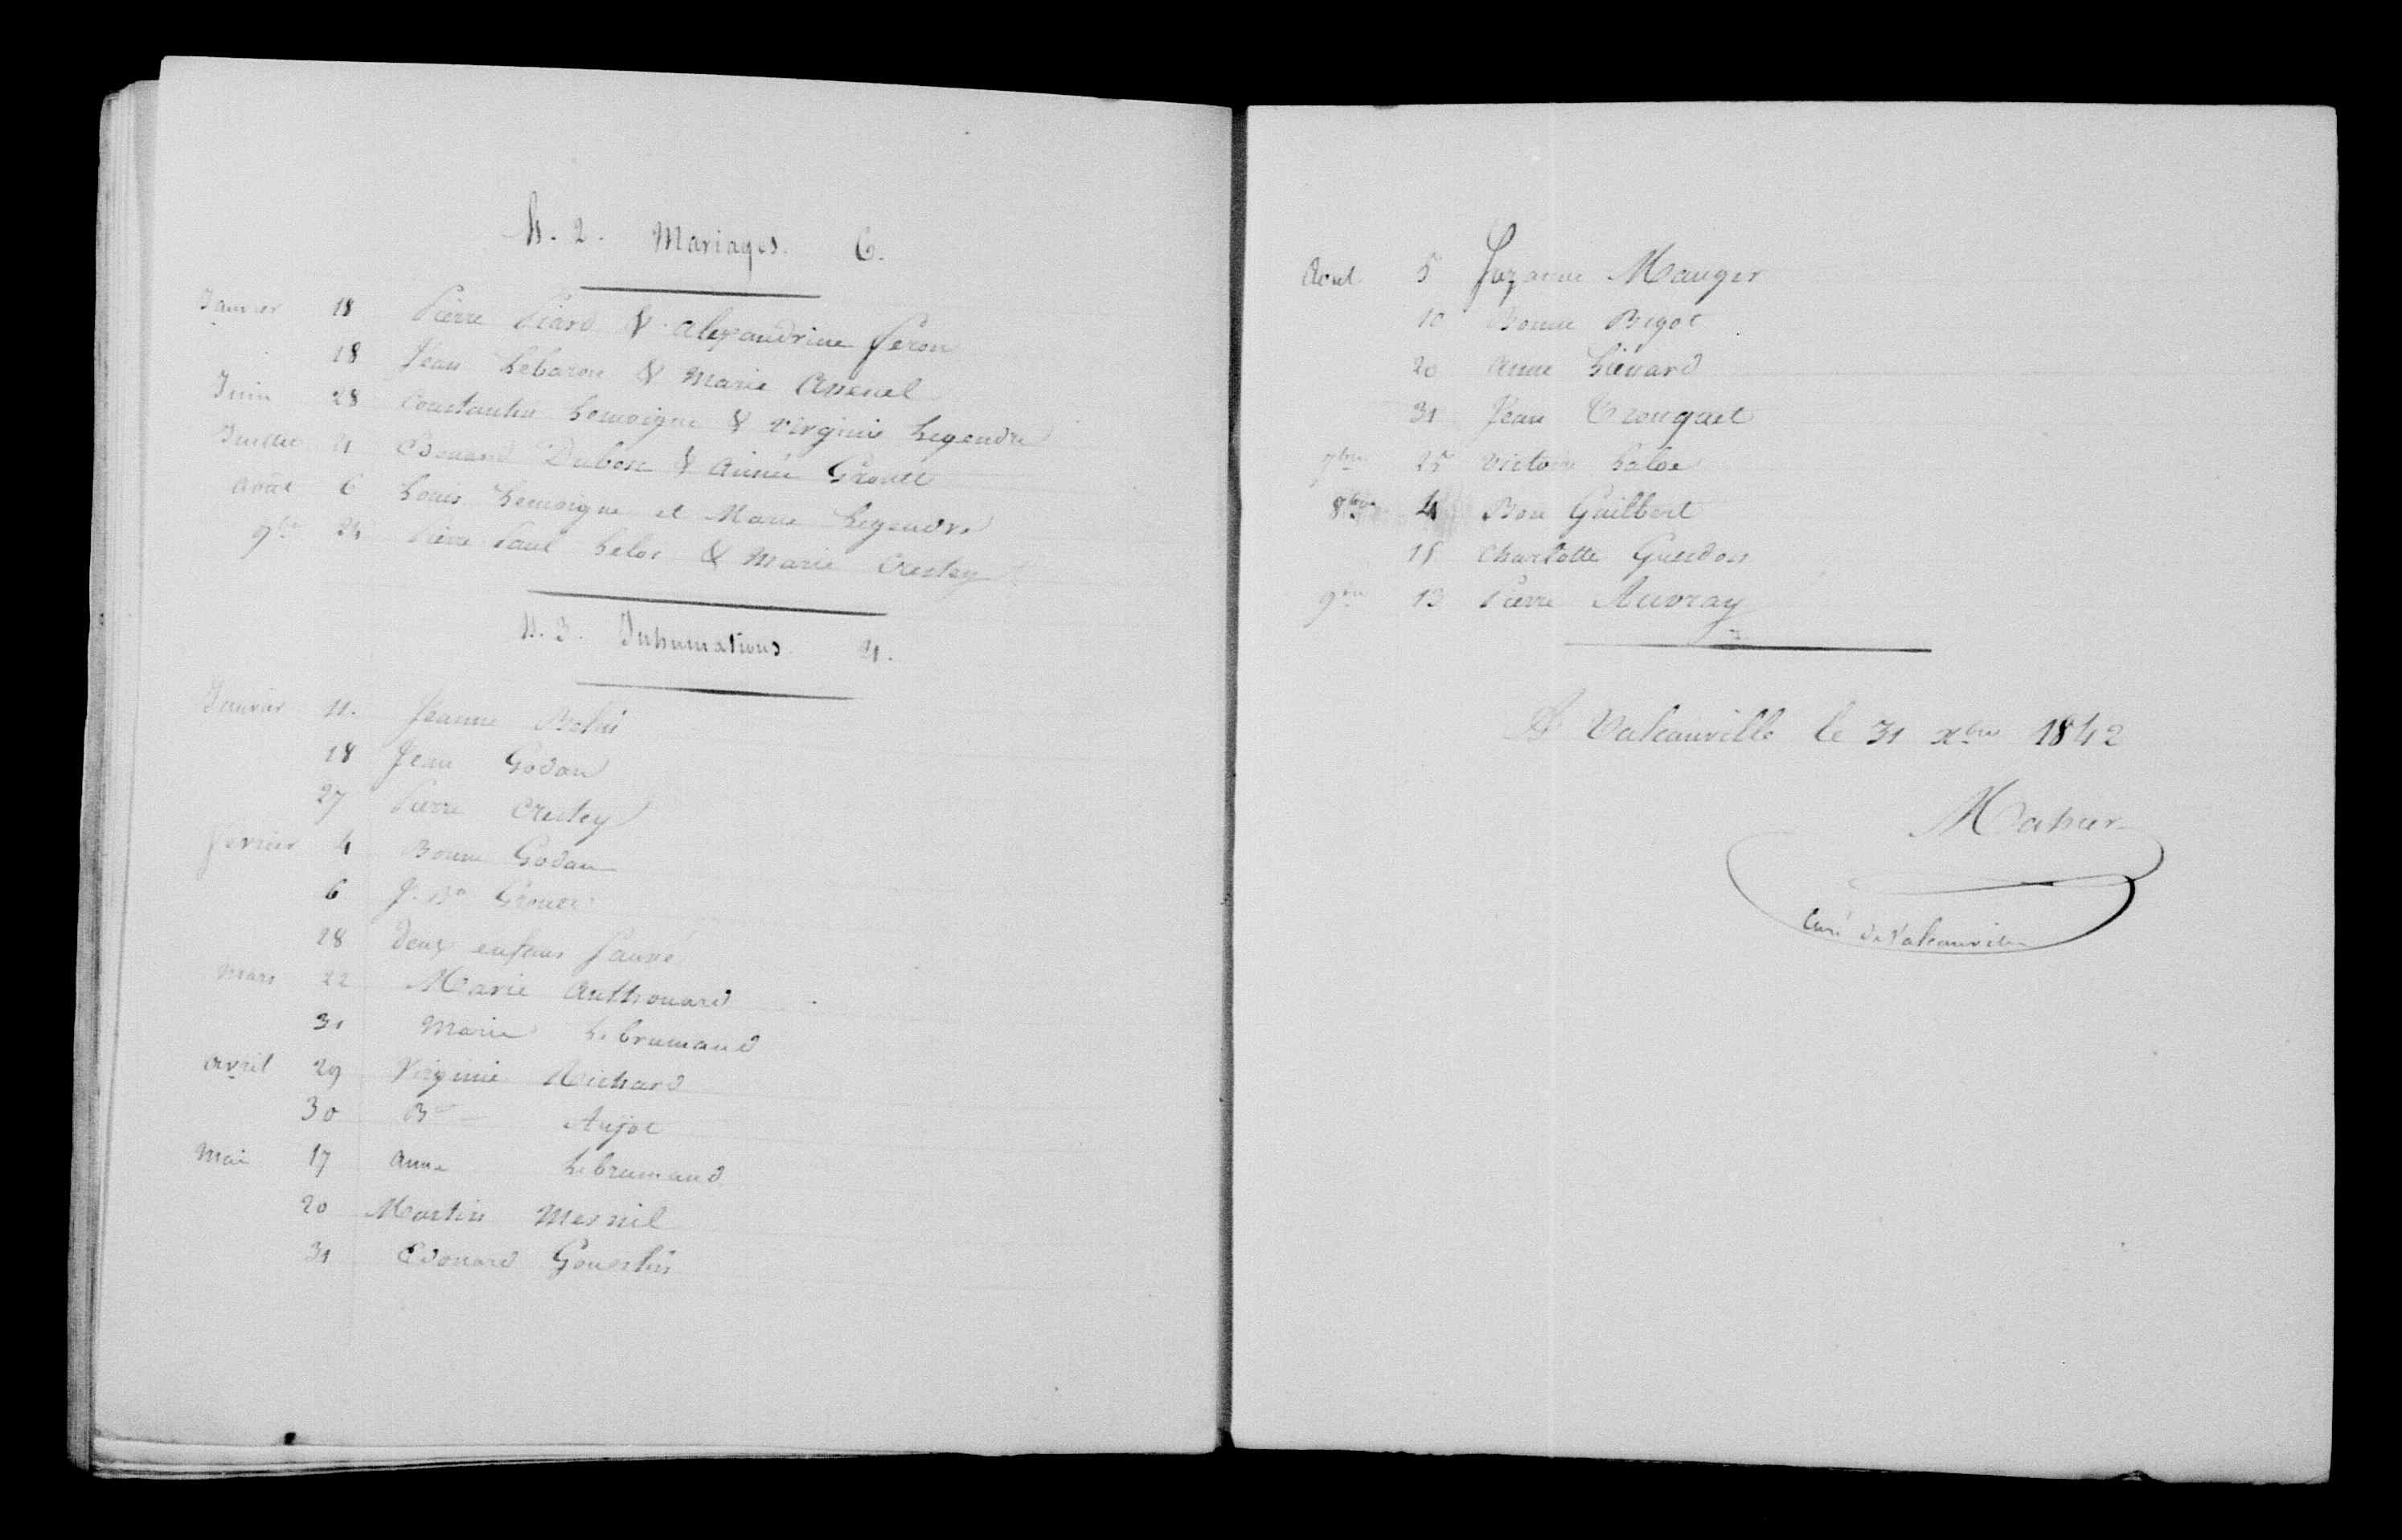 N. 2. Mariages. 6.
Janvier 18 Pierre Piard & alexandrine feron
18 Jean Lebaron & Marie Asselel
Juin 28 Constantin Lemoigne & virginie Legendre
Juillet 21 Edouard Dubosc & aimée Groult
Août 6 Louis Lemoigne et Marie Legendre
9bre 23 Pierre Paul Leloe & Marie Crestey
N. 3. Inhumations 21.
Janvier 11. Jeanne Belin
18 Jean Godan
27 Pierre Crestey
fevrier 4 Bonne Godan
6 J. Bte Groult
28 Deux enfans fauné
Mars 22 Marie Anthouard
31 Marie Lebrumand
Avril 29 Virginie Richard
30 Bon Anjot
Mai 17 Anne Lebrumand
20 Martin Mesnil
31 Edouard Gouestin
Aout 5 Suzanne Mauger
10 Bonne Bigot
20 Anne Liévard
31 Jean Trouquet
7bre 25 Victoire Laloe
8bre 4 Bon Guilbert
15 Charlotte Guerdon
9bre 13 Pierre Auvray
A Valcanville le 31 xbre 1842
Mahier
Curé de Valcanville